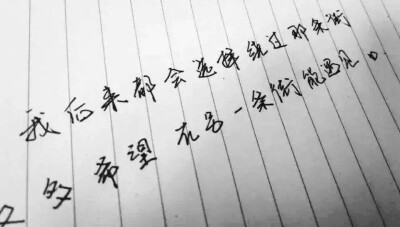 我后来都会选择绕过那条街
又多希望在另一条街能遇见。